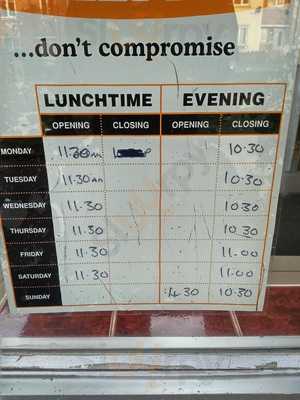 ...don't compromise
LUNCHTIME EVENING
OPENING CLOSING OPENING CLOSING
MONDAY 11.30am 10.30
TUESDAY 11.30am 10.30
WEDNESDAY 11.30 10.30
THURSDAY 11.30 10.30
FRIDAY 11.30 11.00
SATURDAY 11.30 11.00
SUNDAY 4.30 10.30